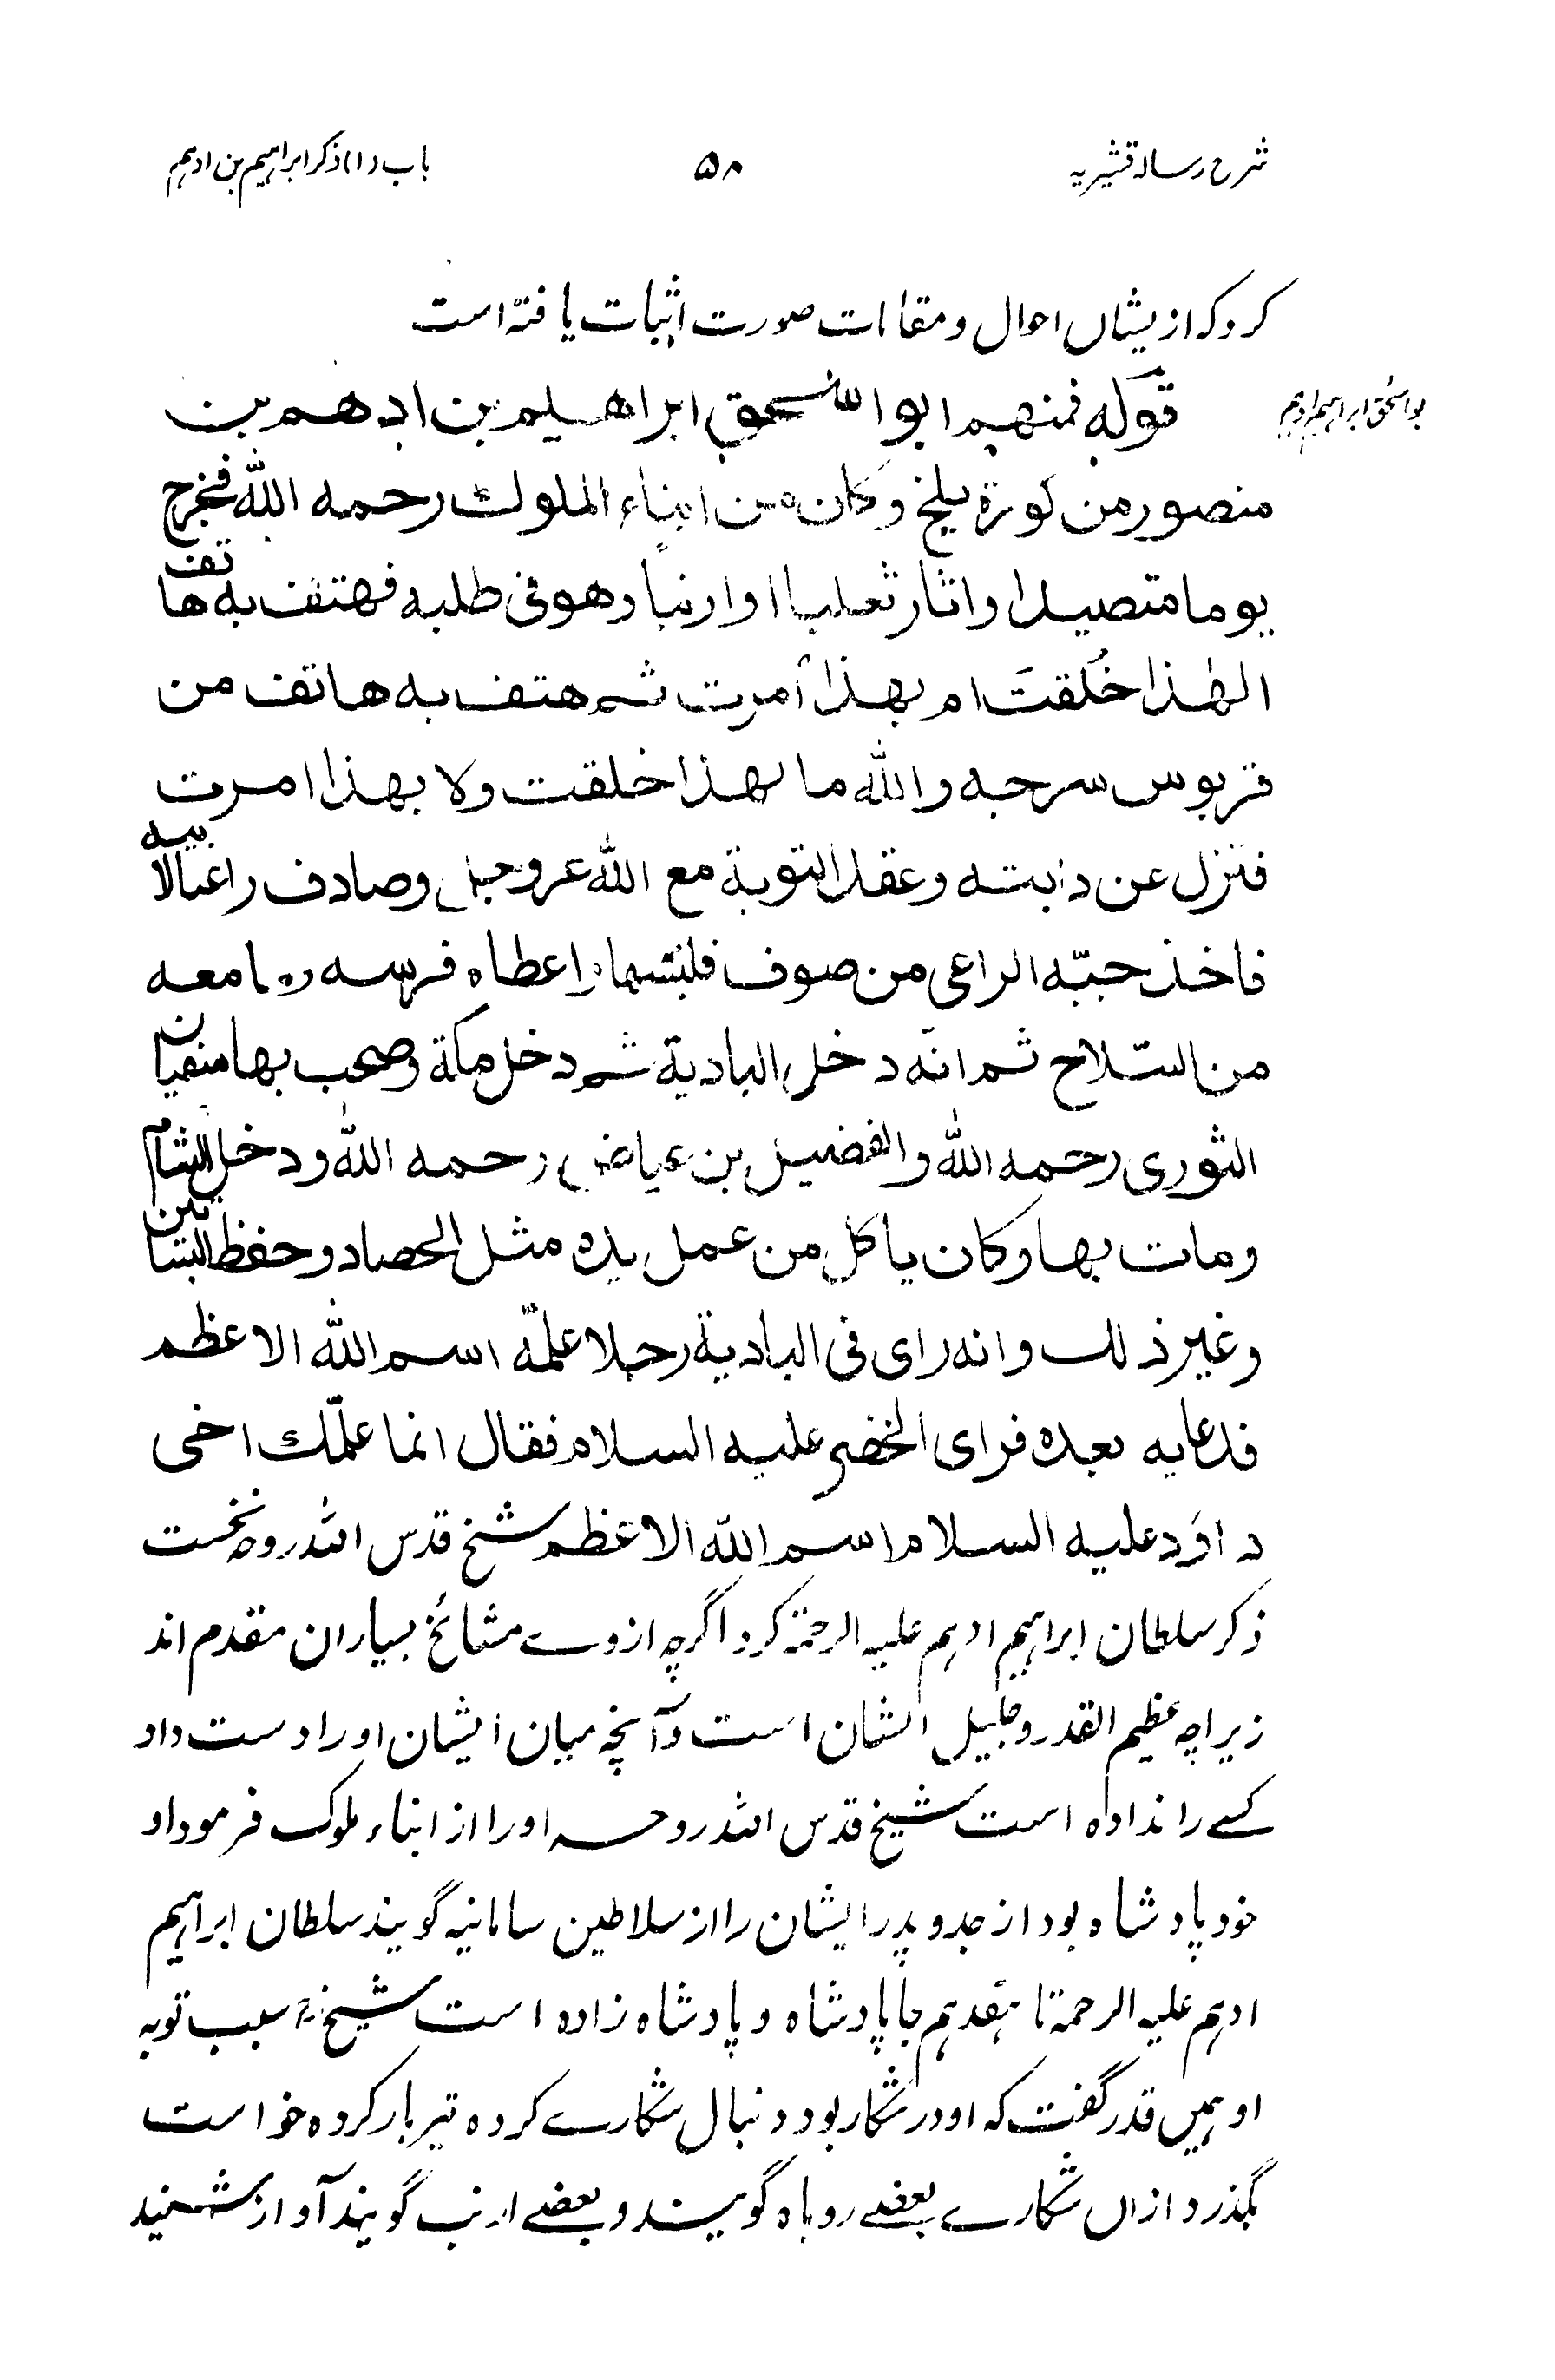 شرح رسالہ قشیریہ
۵۸
باب (۱) ذکر ابراہیم بن ادہم
کرد کہ ازیشاں احوال و مقامات صورت اثبات یافتہ است
بو اسحٰق ابراہیم ادہم
قوله فمنهم ابو اسحٰق ابراهیم بن ادهم بن
منصور من کورة بلخ وکان من ابناء الملوك رحمه الله فخرج
یوما متصیدا واثار ثعلبا او ارنبا وهو فی طلبه فهتف به هاتف
الهٰذا خُلقتَ ام بهذا اُمرت ثم هتف به هاتف من
قربوس سرجه والله ما لهذا خلقت ولا بهذا امرت
فنزل عن دابته وعقد التوبة مع الله عز وجل وصادف راعیا لابیه
فاخذ جبّة الراعی من صوف فلبسها واعطاه فرسه وما معه
من السّلاح ثم انّه دخل البادیة ثم دخل مکة وصحب بها سفیان
الثوری رحمه الله والفضیل بن عیاض رحمه الله ودخل الشام
ومات بها وکان یاکل من عمل یده مثل الحصاد وحفظ البساتین
وغیر ذلك وانه رای فی البادیة رجلا علّمه اسم الله الاعظم
فدعا به بعده فرای الخضر علیه السلام فقال انما علّمك اخی
داؤد علیه السلام اسم الله الاعظم شیخ قدس اللہ روحہ نخست
ذکر سلطان ابراہیم ادہم علیہ الرحمۃ کرد اگرچہ ازوے مشائخ بسیاران مقدم اند
زیراچہ عظیم القدر و جلیل الشان است و آنچہ میان ایشان او را دست داد
کسے را نداده است شیخ قدس اللہ روحہ او را از ابناء ملوک فرمود او
خود پادشاہ بود از جد و پدر ایشان را از سلاطین سامانیہ گویند سلطان ابراہیم
ادہم علیہ الرحمۃ تا ہفدہم جا پادشاہ و پادشاہ زادہ است شیخ سبب توبہ
او ہمیں قدر گفت کہ او در شکار بود دنبال شکارے کردہ تیر بار کردہ خواست
بگذرد ازاں شکارے بعضے روباہ گویند و بعضے ارنب گویند آواز شنید